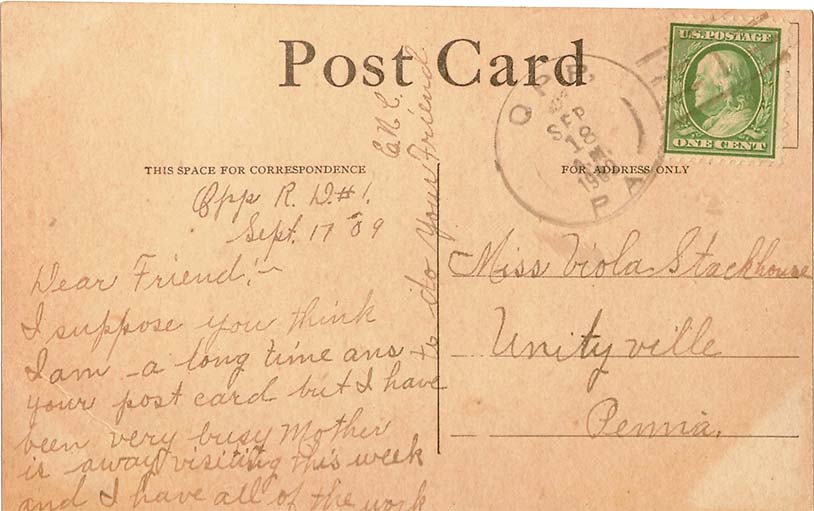 Post Card
U.S. POSTAGE
ONE CENT
OPP
SEP
18
A.M.
1909
PA
THIS SPACE FOR CORRESPONDENCE
FOR ADDRESS ONLY
Opp R. D. #1.
Sept. 17 09
Dear Friend:-
I suppose you think
I am a long time ans
your post card but I have
been very busy Mother
is away visiting this week
and I have all of the work
to do Your Friend
E. N. C.
Miss Viola Stackhouse
Unityville
Penna.